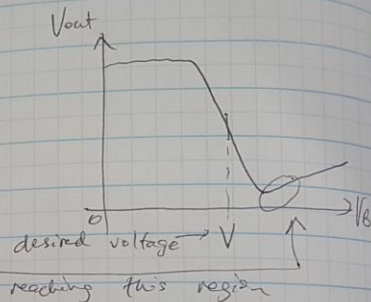 Vout
0
VB
desired voltage → V
reaching this region